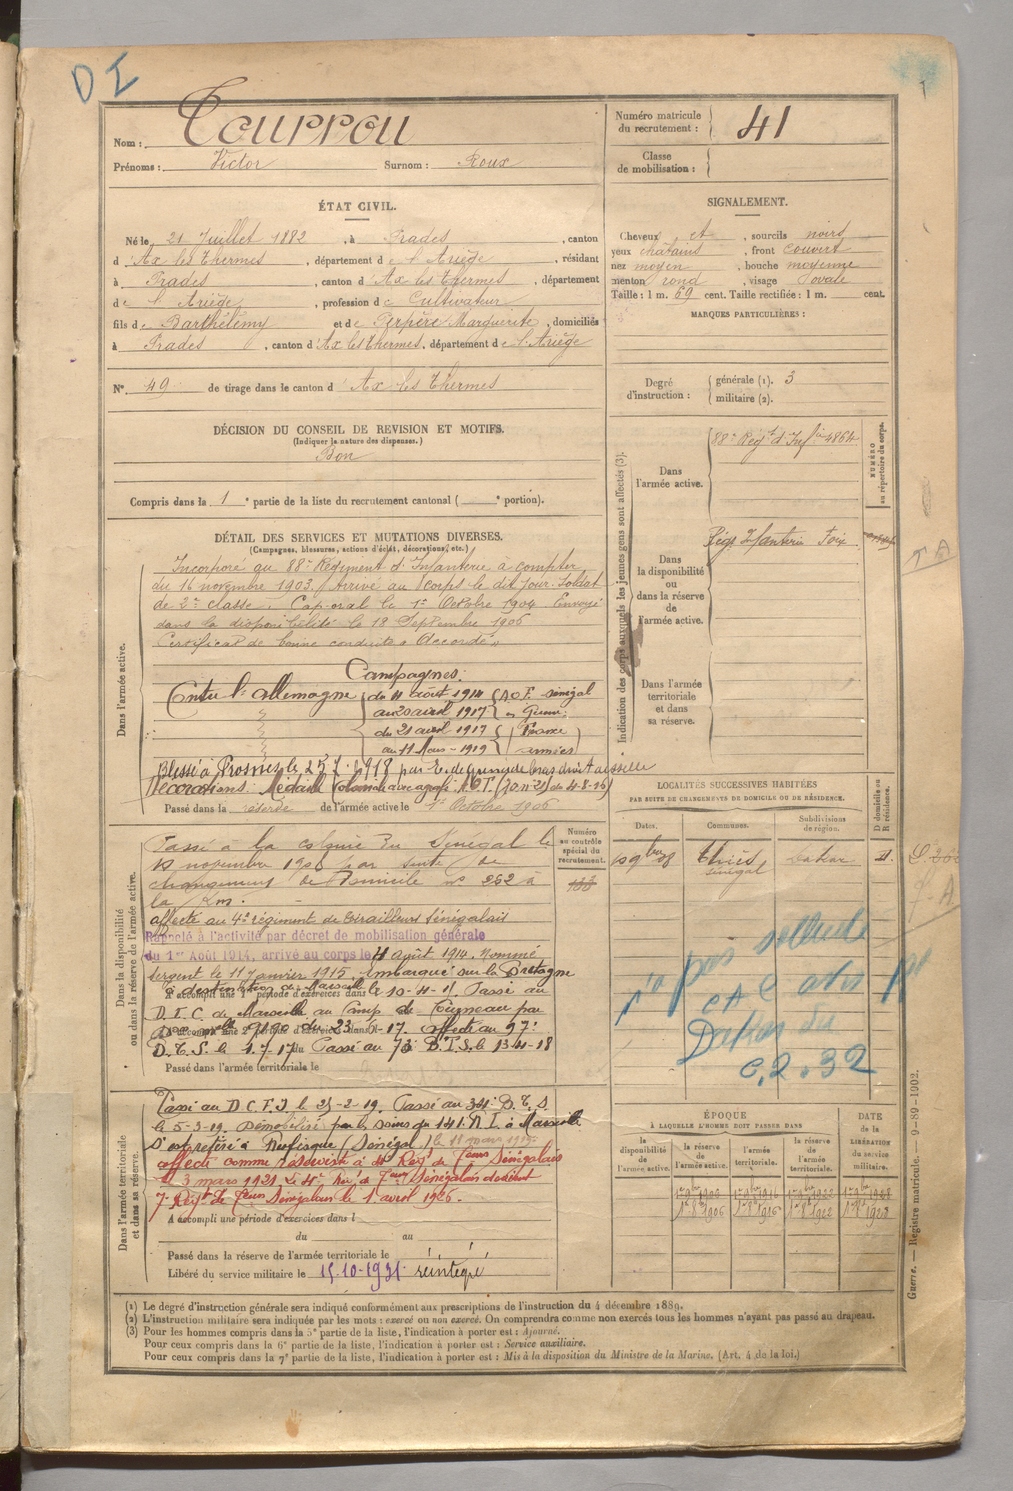 D I
Nom : Tourrou
Prénoms : Victor Surnom : Roux
Numéro matricule du recrutement : 41
Classe de mobilisation :
ÉTAT CIVIL.
Né le 21 Juillet 1882, à Prades, canton
d'Ax les Thermes, département de l'Ariège, résidant
à Prades, canton d'Ax les Thermes, département
de l'Ariège, profession de Cultivateur
fils de Barthélémy et de Perpère Marguerite, domiciliés
à Prades, canton d'Ax les thermes, département de l'Ariège
N° 49 de tirage dans le canton d'Ax les Thermes
SIGNALEMENT.
Cheveux et, sourcils noirs
yeux châtains, front couvert
nez moyen, bouche moyenne
menton rond, visage ovale
Taille : 1 m. 69 cent. Taille rectifiée : 1 m. cent.
MARQUES PARTICULIÈRES :
Degré d'instruction : générale (1). 3
militaire (2).
DÉCISION DU CONSEIL DE REVISION ET MOTIFS.
(Indiquer la nature des dispenses.)
Bon
Compris dans la 1e partie de la liste du recrutement cantonal ( e portion).
Indication des corps auxquels les jeunes gens sont affectés (3).
NUMÉRO au répertoire du corps.
Dans l'armée active.
88e Régt d'Infie à 4864
Dans la disponibilité ou dans la réserve de l'armée active.
Régt Infanterie Foix
Dans l'armée territoriale et dans sa réserve.
DÉTAIL DES SERVICES ET MUTATIONS DIVERSES.
(Campagnes, blessures, actions d'éclat, décorations, etc.)
Dans l'armée active.
Incorporé au 88e Régiment d'Infanterie à compter
du 16 novembre 1903. Arrivé au Corps le dit jour. Soldat
de 2e classe. Caporal le 1er Octobre 1904 Envoyé
dans la disponibilité le 18 Septembre 1906
Certificat de bonne conduite « Accordé »
Campagnes :
Contre l'Allemagne du 11 août 1914 A.O.F. Sénégal
au 20 avril 1917 en Guerre
du 21 avril 1917 France
au 11 Mars 1919 armées
Blessé à Prosnes le 25 7 1918 par E. de Grenade bras droit aisselle
Décorations : Médaille Coloniale avec agrafe
Passé dans la réserve de l'armée active le 1er Octobre 1906
Dans la disponibilité ou dans la réserve de l'armée active.
Numéro au contrôle spécial du recrutement.
Passé à la colonie du Sénégal le
novembre 1908 par suite de
changement de domicile n° 262 à
la
affecté au 4e régiment de tirailleurs Sénégalais
Rappelé à l'activité par décret de mobilisation générale
du 1er Août 1914, arrivé au corps le 11 août 1914. Nommé
sergent le 11 Janvier 1915 Embarqué sur la Bretagne
à destination de Marseille le 10-4-17. Passé au
A accompli une 1re période d'exercices dans l
D.I.C. de Marseille au Camp de Courneau par
du 23-4-17. affecté au 97e
B.T.S. le 1-7-17 Passé au 73 B.T.S. le 13-4-18
Passé dans l'armée territoriale le
Dans l'armée territoriale et dans sa réserve.
Passé au D.C.F.I. le 25-2-19. Passé au 341 B.T.S
le 5-3-19. Démobilisé par les soins du 141e R.I. à Marseille
S'est retiré à Rufisque (Sénégal) le 11 mars 1919.
affecté comme réserviste à 4e Régt de Teurs Sénégalais
3 mars 1921 Le 4e Régt de Teurs Sénégalais devient
7e Régt de Teurs Sénégalais le 1er avril 1926.
A accompli une période d'exercices dans l
du au
Passé dans la réserve de l'armée territoriale le
Libéré du service militaire le 15-10-1931 réintégré
LOCALITÉS SUCCESSIVES HABITÉES
PAR SUITE DE CHANGEMENTS DU DOMICILE OU DE RÉSIDENCE.
Dates. Communes. Subdivisions de région. D domicile ou R résidence.
Thiès, Sénégal Dakar D.
n'a pas
et avis
Dakar du
C.2.32
ÉPOQUE
À LAQUELLE L'HOMME DOIT PASSER DANS
la disponibilité de l'armée active. la réserve de l'armée active. l'armée territoriale. la réserve de l'armée territoriale. DATE de la LIBÉRATION du service militaire.
1er 8bre 1906 1er 8bre 1916 1er 8bre 1922 1er 8bre 1928
Guerre. — Registre matricule. — 9-89-1902.
(1) Le degré d'instruction générale sera indiqué conformément aux prescriptions de l'instruction du 4 décembre 1889.
(2) L'instruction militaire sera indiquée par les mots : exercé ou non exercé. On comprendra comme non exercés tous les hommes n'ayant pas passé au drapeau.
(3) Pour les hommes compris dans la 5e partie de la liste, l'indication à porter est : Ajourné.
Pour ceux compris dans la 6e partie de la liste, l'indication à porter est : Service auxiliaire.
Pour ceux compris dans la 7e partie de la liste, l'indication à porter est : Mis à la disposition du Ministre de la Marine. (Art. 4 de la loi.)